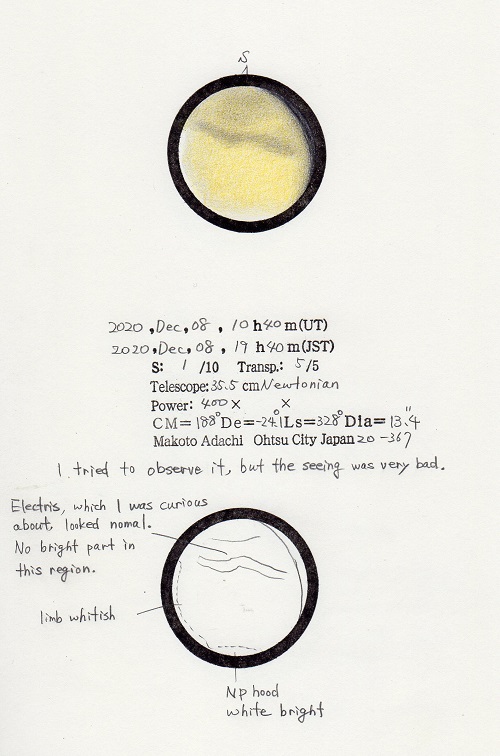 S
2020, Dec, 08, 10 h 40 m (UT)
2020, Dec, 08, 19 h 40 m (JST)
S: 1 /10 Transp.: 5/5
Telescope: 35.5 cm Newtonian
Power: 400 × ×
CM= 188° De= -24.1° Ls= 328° Dia= 13."4
Makoto Adachi Ohtsu City Japan 20-367
I tried to observe it, but the seeing was very bad.
Electris, which I was curious
about, looked nomal.
No bright part in
this region.
limb whitish
NP hood
white bright